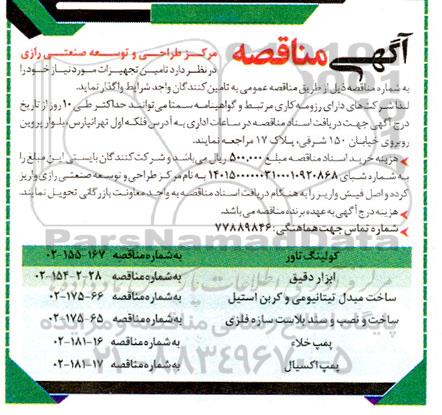 آگهی مناقصه
مرکز طراحی و توسعه صنعتی رازی
در نظر دارد تامین تجهیزات مورد نیاز خود را
به شماره مناقصه ذیل از طریق مناقصه عمومی به تامین کنندگان واجد شرایط واگذار نماید.
لذا شرکت های دارای رزومه کاری مرتبط و گواهینامه سمتا می توانند حداکثر طی ۱۰ روز از تاریخ
درج آگهی جهت دریافت اسناد مناقصه در ساعات اداری به آدرس فلکه اول تهرانپارس، بلوار پروین
روبروی خیابان ۱۵۰ شرقی، پلاک ۱۷ مراجعه نمایند.
هزینه خرید اسناد مناقصه مبلغ ۵۰۰,۰۰۰ ریال می باشد و شرکت کنندگان بایستی این مبلغ را
به شماره شبای ۱۴۰۱۵۰۰۰۰۰۳۱۰۰۰۱۰۹۲۰۸۶۸ به نام مرکز طراحی و توسعه صنعتی رازی واریز
کرده و اصل فیش واریز را به هنگام دریافت اسناد مناقصه به واحد معاونت بازرگانی تحویل نمایند.
هزینه درج آگهی به عهده برنده مناقصه می باشد.
شماره تماس جهت هماهنگی: ۷۷۸۸۹۸۴۶
کولینگ تاور به شماره مناقصه ۱۶۷-۱۵۵-۰۲
ابزار دقیق به شماره مناقصه ۲۸-۲-۱۵۴-۰۲
ساخت مبدل تیتانیومی و کربن استیل به شماره مناقصه ۶۶-۱۷۵-۰۲
ساخت و نصب و سند بلاست سازه فلزی به شماره مناقصه ۶۵-۱۷۵-۰۲
پمپ خلاء به شماره مناقصه ۱۶-۱۸۱-۰۲
پمپ اکسیال به شماره مناقصه ۱۷-۱۸۱-۰۲
ParsNamadData
۰۲۱-۸۸۳۴۹۶۷۰-۵